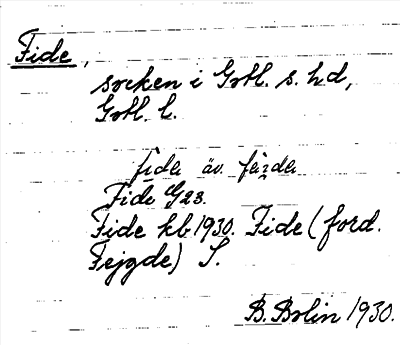 Fide,
socken i Gotl. s. hd,
Gotl. l.
fide äv.
Fide G23.
Fide kb 1930. Fide (ford.
Fejgde) S.
B. Bolin 1930.